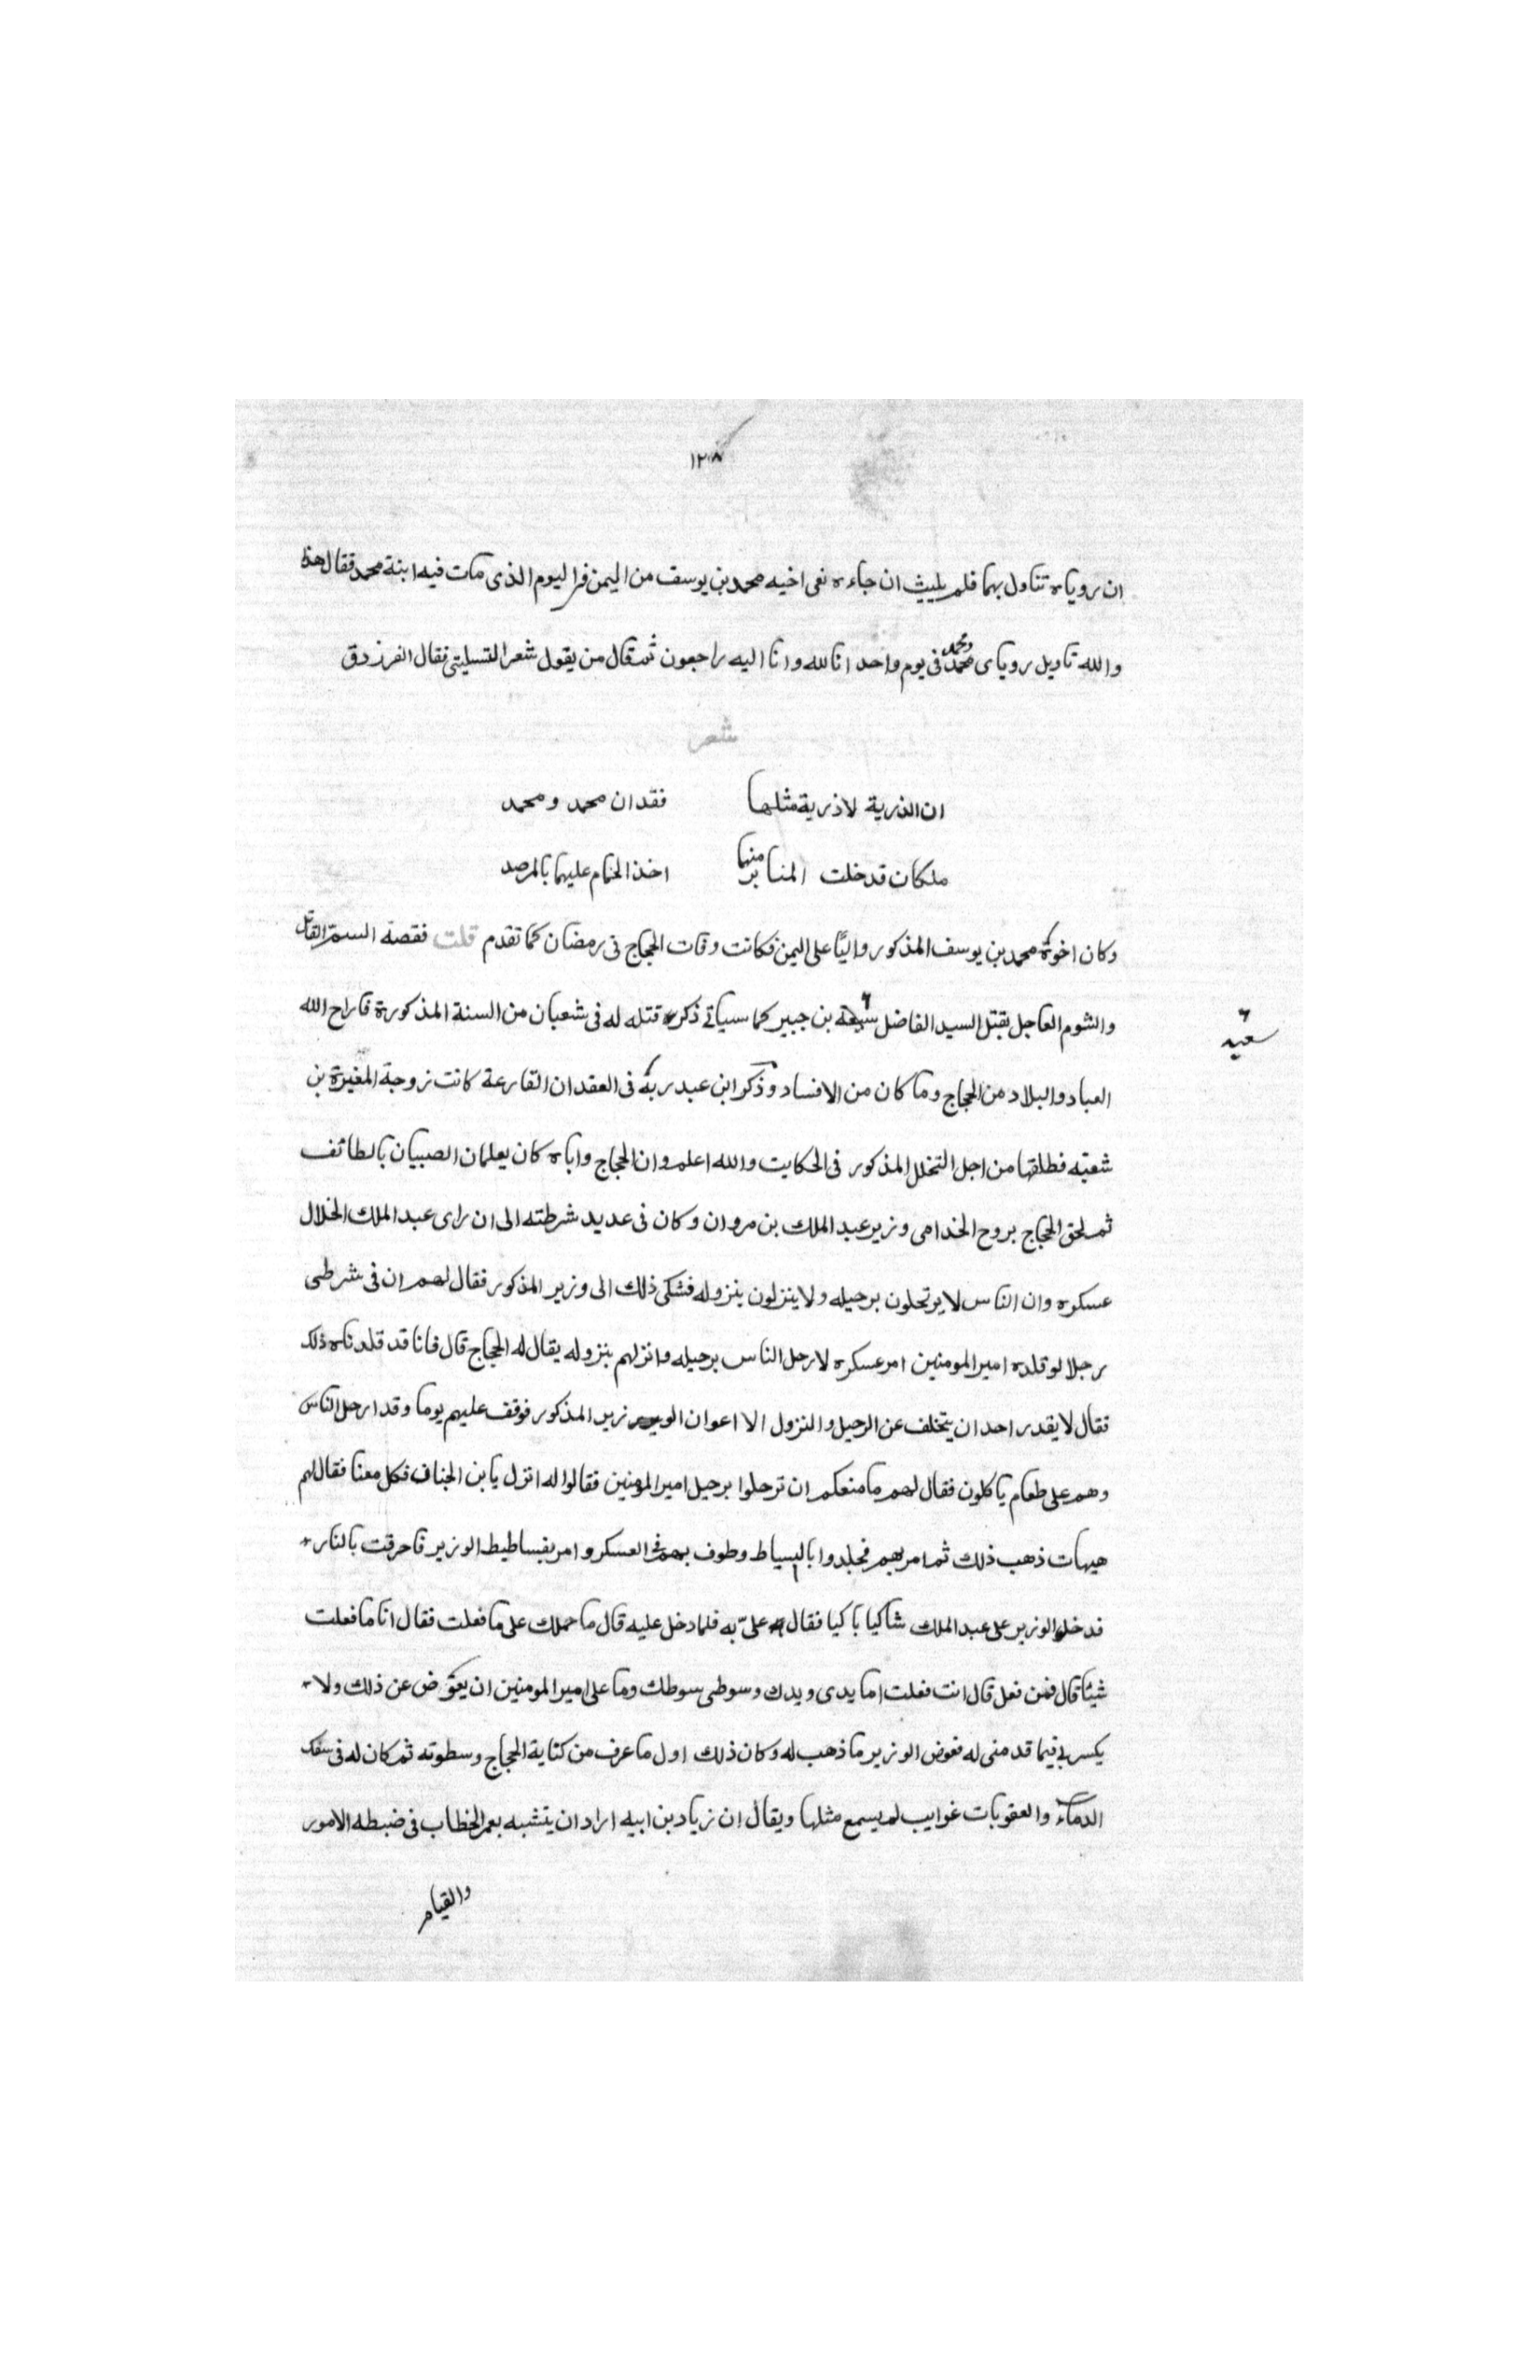 ١٢٠٨
ان روياه تناول بهما فلم يلبث ان جاءه نعى اخيه محمد بن يوسف من اليمن فى اليوم الذى مات فيه ابنة محمد فقال هذا
والله تاويل روياى محمد ومحمد فى يوم واحد انا لله وانا اليه راجعون ثم قال من يقول شعرا لتسليتى فقال الفرزدق
شعر
ان الذرية لا ذرية مثلها فقدان محمد ومحمد
ملكان قد خلت المنابر منهما اخذ الحمام عليهما بالمرصد
وكان اخوه محمد بن يوسف المذكور واليًا على اليمن فكانت وفات الحجاج فى رمضان كما تقدم قلت فقصه السم القاتل
والشوم العاجل بقتل السيد الفاضل بن جبير كما سياتى ذكر قتله له فى شعبان من السنة المذكورة فاراح الله
سعيد
العباد والبلاد من الحجاج وما كان من الافساد وذكر ابن عبد ربه فى العقد ان القارعة كانت زوجة المغيرة بن
شعبه فطلقها من اجل التخلل المذكور فى الحكايت والله اعلم وان الحجاج واباه كان يعلمان الصبيان بالطائف
ثم لحق الحجاج بروح الخدامى وزير عبد الملك بن مروان وكان فى عديد شرطته الى ان راى عبد الملك الخلال
عسكره وان الناس لا يرتحلون برحيله ولا ينزلون بنزوله فشكى ذلك الى وزير المذكور فقال لهم ان فى شرطى
رجلا لو قلده امير المومنين امر عسكره لارحل الناس برحيله وانزلهم بنزوله يقال له الحجاج قال فانا قد قلدناه ذلك
فقال لا يقدر احد ان يتخلف عن الرحيل والنزول الا اعوان الوزير المذكور فوقف عليهم يوما وقد ارحل الناس
وهم على طعام ياكلون فقال لهم ما منعكم ان ترحلوا برحيل امير المومنين فقالوا له انزل يا بن الجناف فكل معنا فقال لهم
هيهات ذهب ذلك ثم امر بهم فجلدوا بالسياط وطوف بهم فى العسكر وامر بفساطيط الوزير فاحرقت بالنار
فدخل الوزير على عبد الملك شاكيا باكيا فقال علىّ به فلما دخل عليه قال ما حملك على ما فعلت فقال انا ما فعلت
شيئا قال فمن فعل قال انت فعلت اما يدى ويدك وسوطى سوطك وما على امير المومنين ان يعوّض عن ذلك ولا
يكسرنى فيما قد منى له فعوض الوزير ما ذهب له وكان ذلك اول ما عرف من كتاية الحجاج وسطوته ثم كان له فى سفك
الدماء والعقوبات غرايب لم يسمع مثلها ويقال ان زياد بن ابيه اراد ان يتشبه بعمر الخطاب فى ضبطه الامور
والقيام